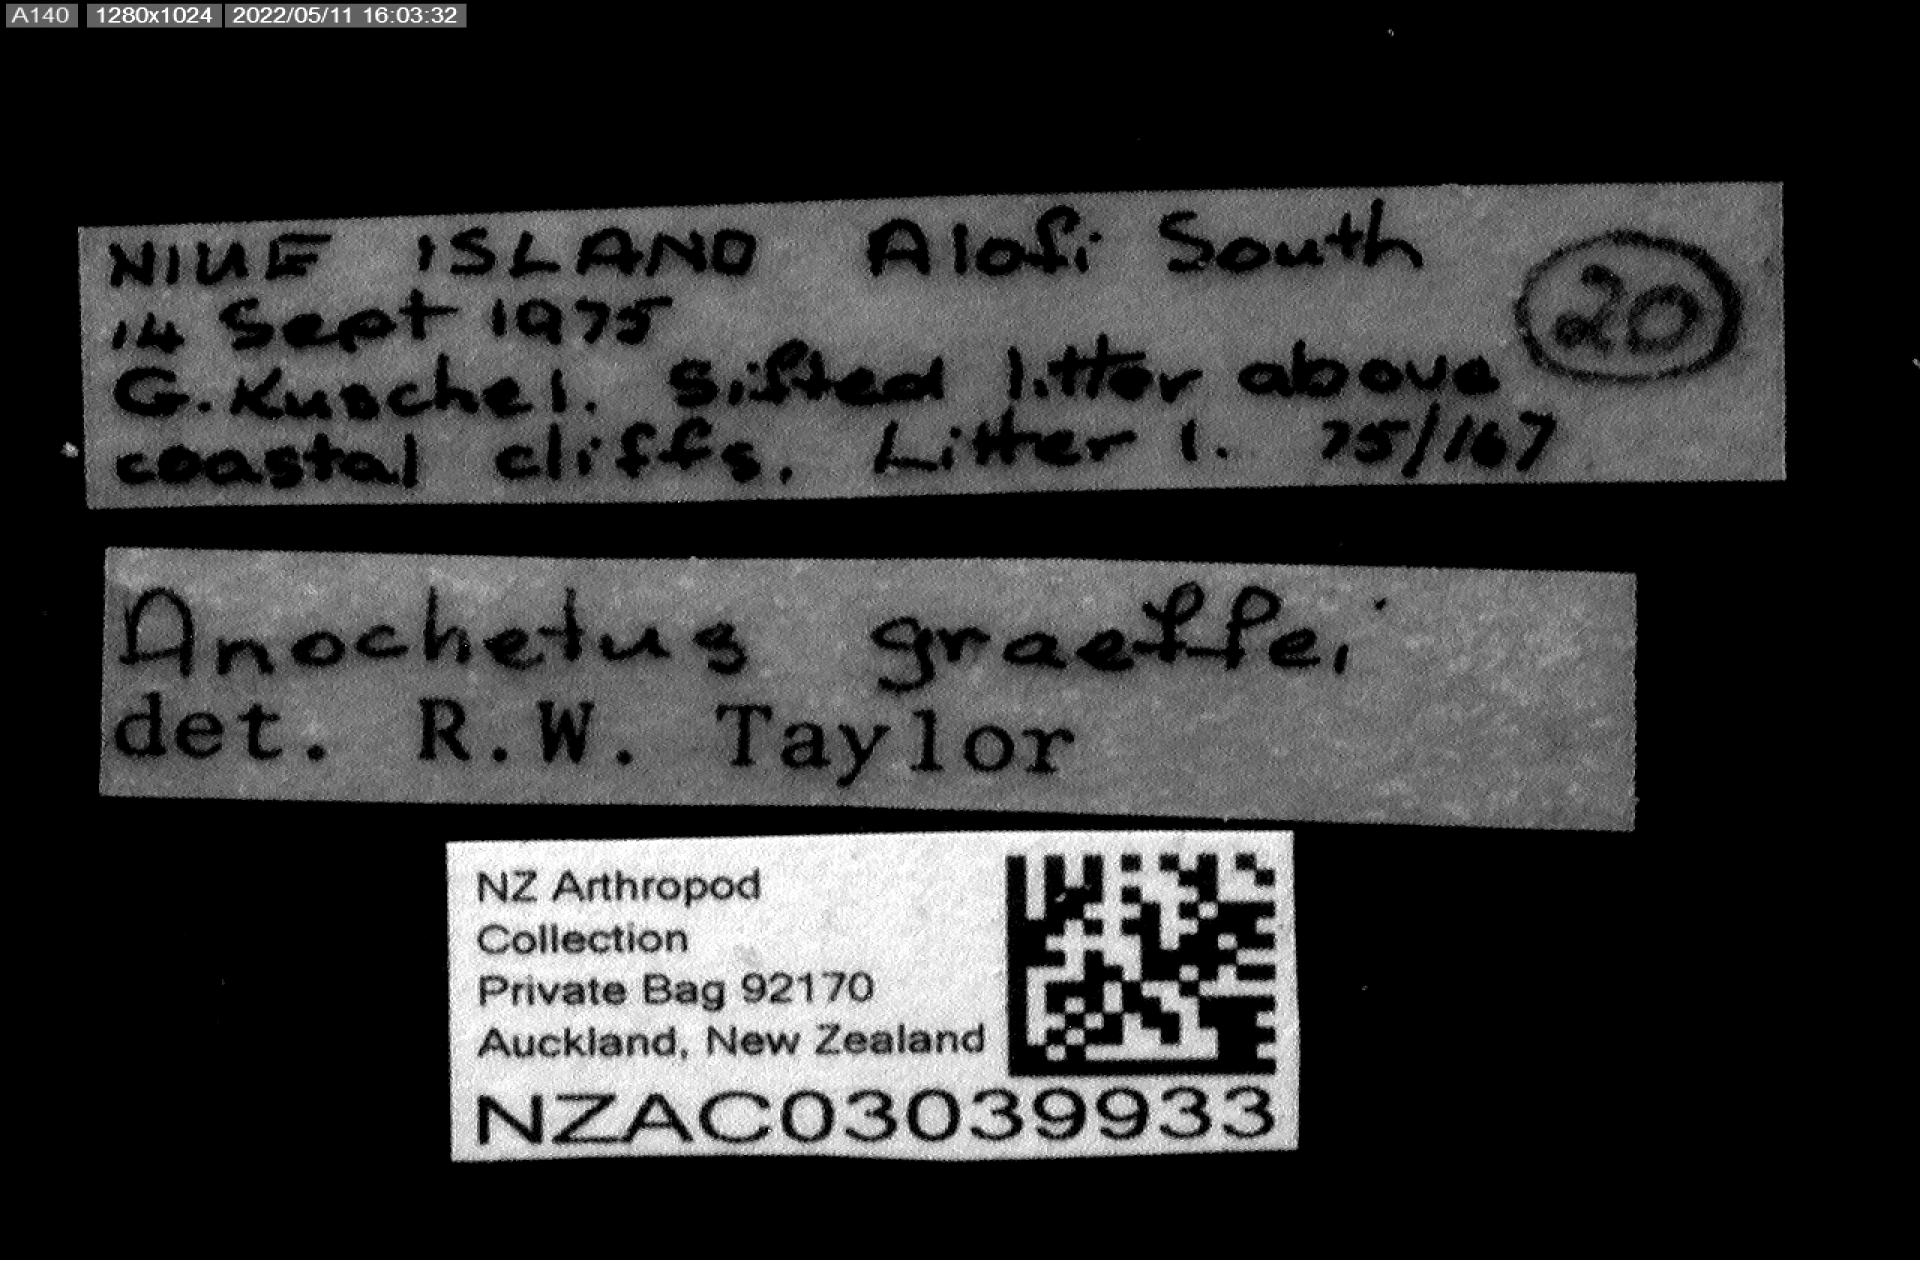 A140 1280x1024 2022/05/11 16:03:32
NIUE ISLAND Alofi South
20
14 Sept 1975
G. Kuschel. Sifted litter above
coastal cliffs. Litter 1. 75/167
Anochetus graeffei
det. R.W. Taylor
NZ Arthropod
Collection
Private Bag 92170
Auckland, New Zealand
NZAC03039933